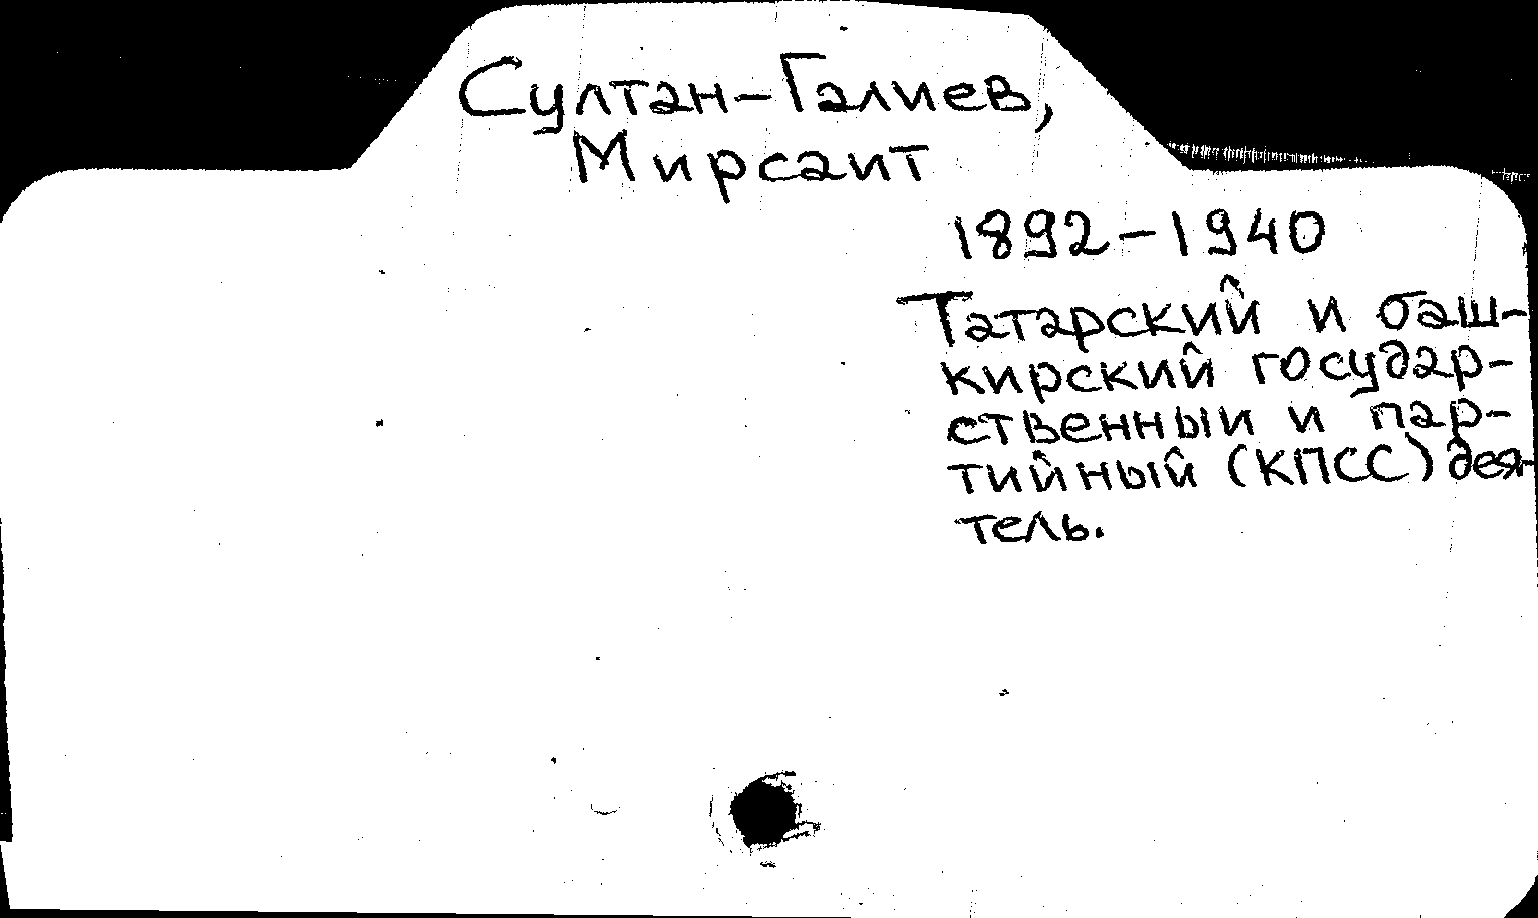 Султан-Галиев,
Мирсаит
1892-1940
Татарский и баш-
кирский государ-
ственный и пар-
тийный (КПСС) дея-
тель.